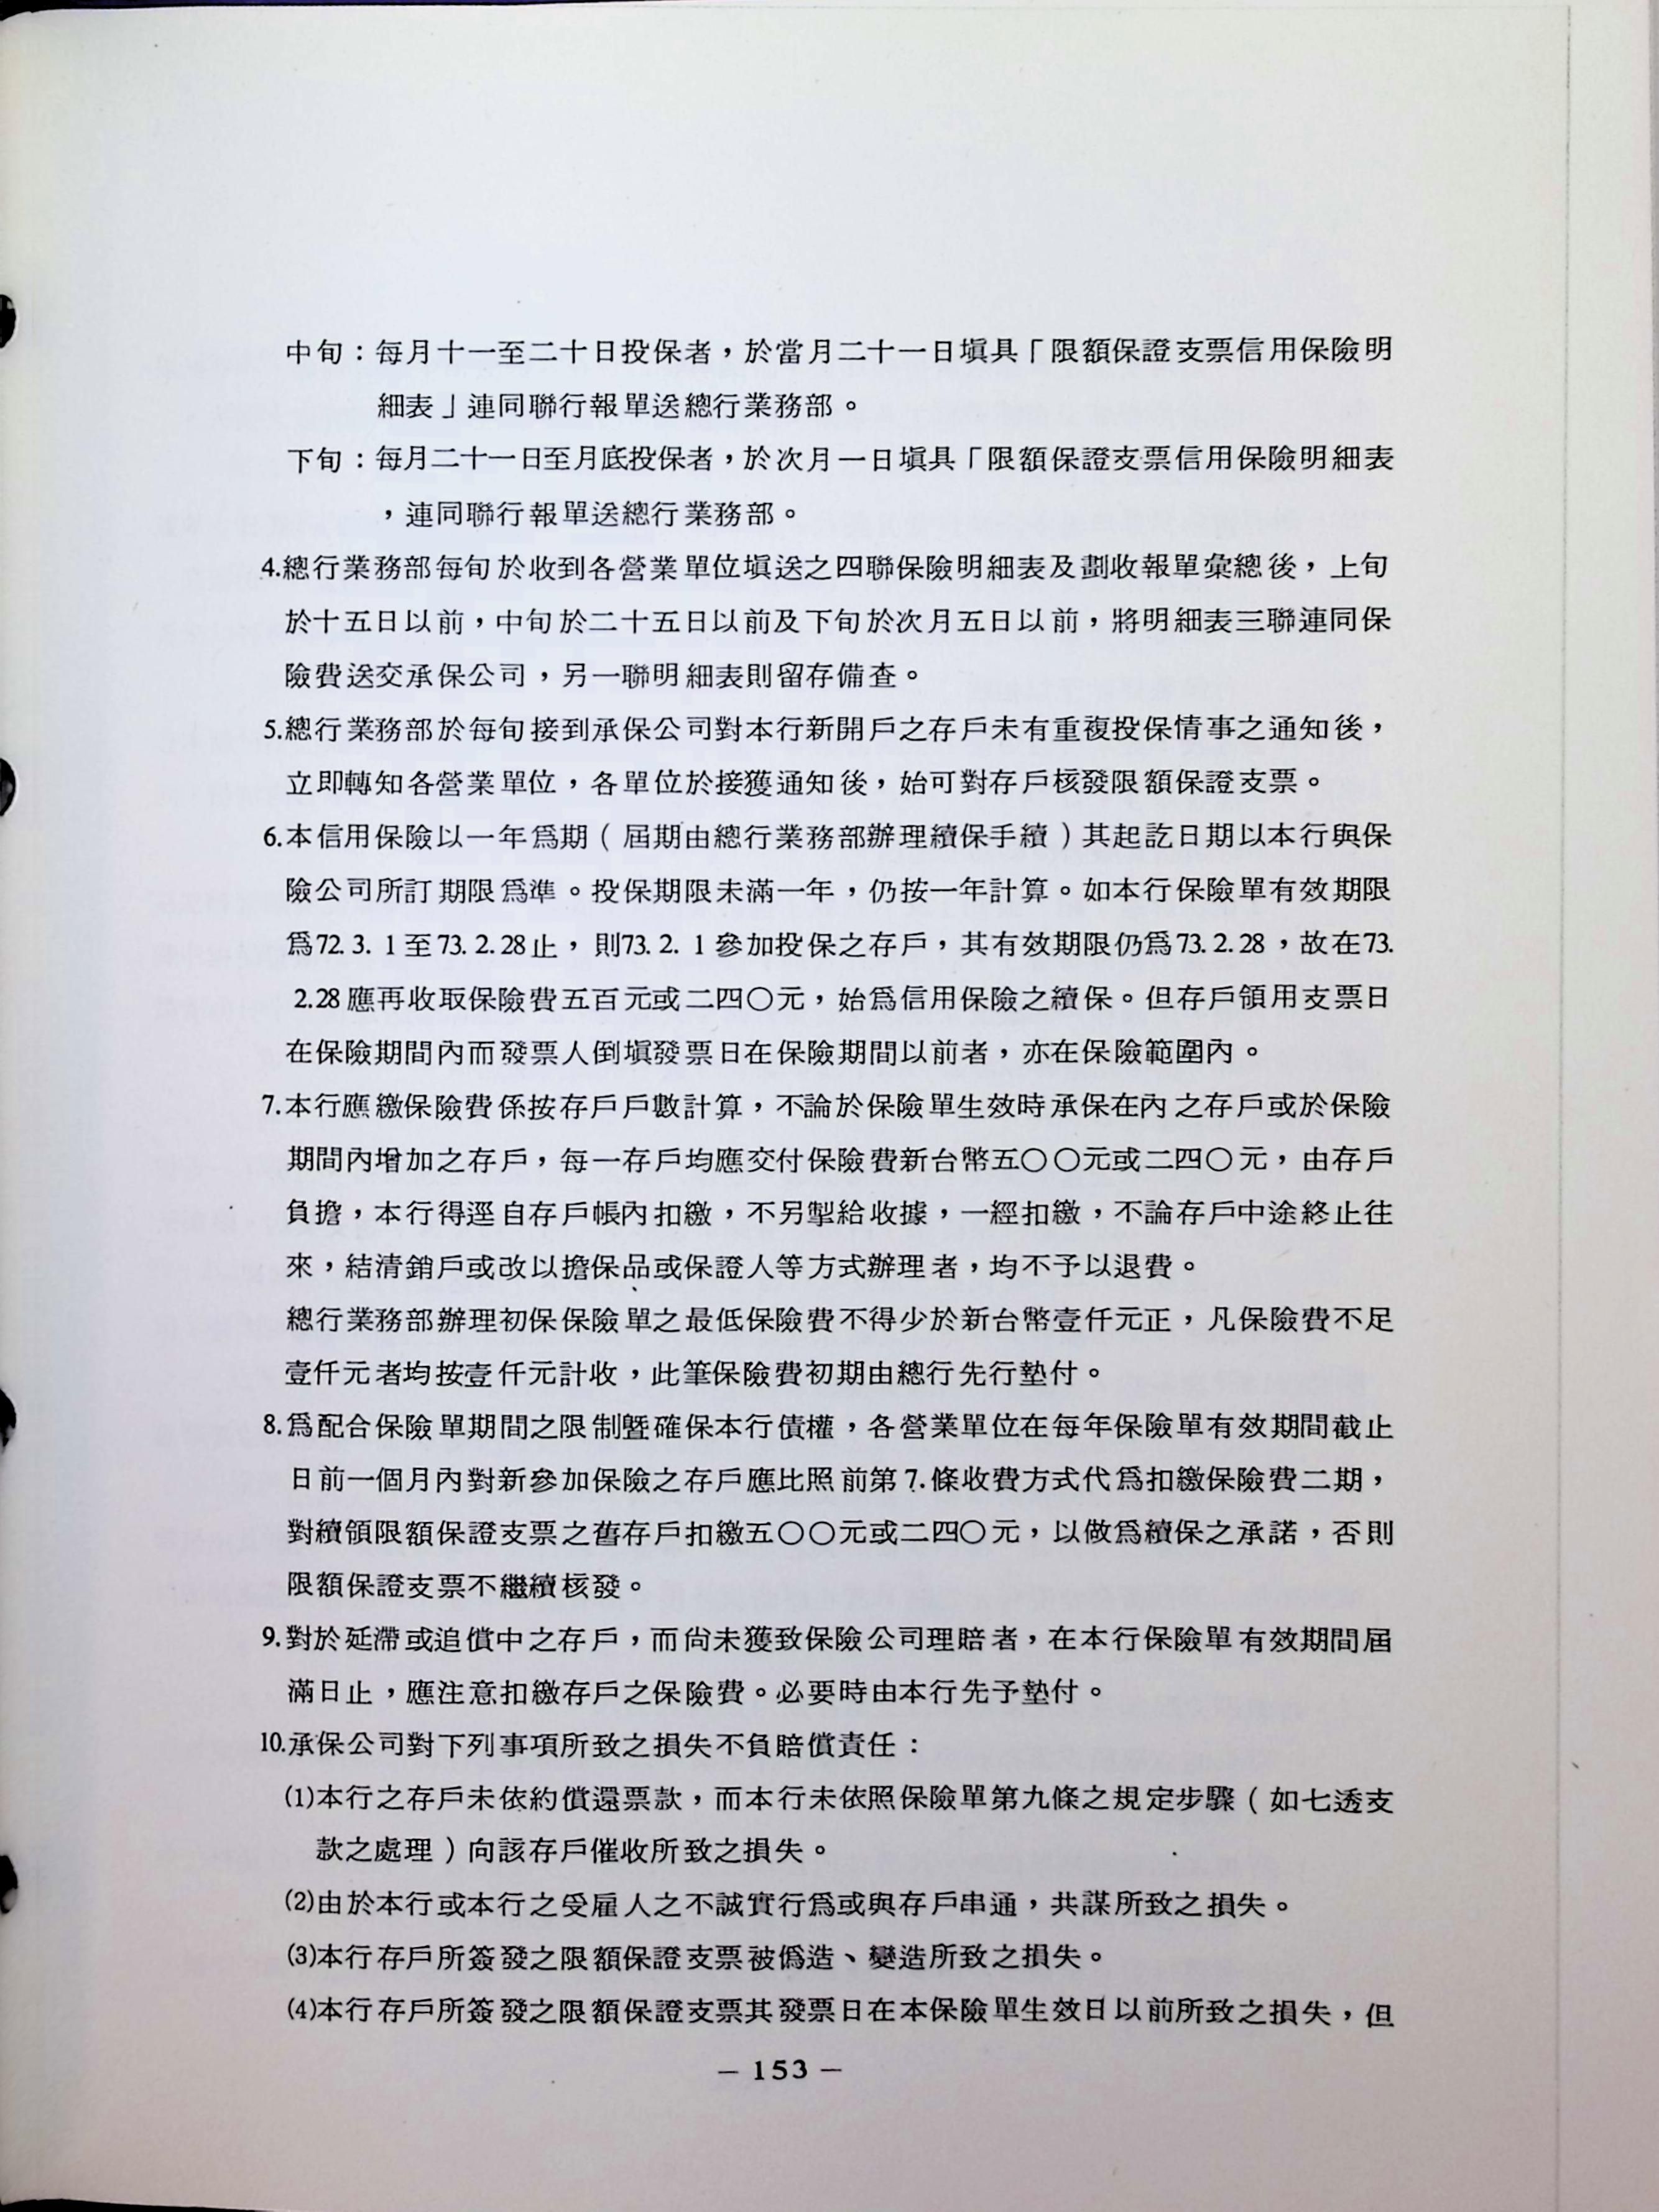 中旬：每月十一至二十日投保者，於當月二十一日塡具「限額保證支票信用保險明
細表」連同聯行報單送總行業務部。
下旬：每月二十一日至月底投保者，於次月一日塡具「限額保證支票信用保險明細表
，連同聯行報單送總行業務部。
4.總行業務部每旬於收到各營業單位塡送之四聯保險明細表及劃收報單彙總後，上旬
於十五日以前，中旬於二十五日以前及下旬於次月五日以前，將明細表三聯連同保
險費送交承保公司，另一聯明細表則留存備查。
5.總行業務部於每旬接到承保公司對本行新開戶之存戶未有重複投保情事之通知後，
立即轉知各營業單位，各單位於接獲通知後，始可對存戶核發限額保證支票。
6.本信用保險以一年爲期（屆期由總行業務部辦理續保手續）其起訖日期以本行與保
險公司所訂期限爲準。投保期限未滿一年，仍按一年計算。如本行保險單有效期限
爲72.3.1至73.2.28止，則73.2.1參加投保之存戶，其有效期限仍爲73.2.28，故在73.
2.28應再收取保險費五百元或二四〇元，始爲信用保險之續保。但存戶領用支票日
在保險期間內而發票人倒塡發票日在保險期間以前者，亦在保險範圍內。
7.本行應繳保險費係按存戶戶數計算，不論於保險單生效時承保在內之存戶或於保險
期間內增加之存戶，每一存戶均應交付保險費新台幣五〇〇元或二四〇元，由存戶
負擔，本行得逕自存戶帳內扣繳，不另掣給收據，一經扣繳，不論存戶中途終止往
來，結清銷戶或改以擔保品或保證人等方式辦理者，均不予以退費。
總行業務部辦理初保保險單之最低保險費不得少於新台幣壹仟元正，凡保險費不足
壹仟元者均按壹仟元計收，此筆保險費初期由總行先行墊付。
8.爲配合保險單期間之限制曁確保本行債權，各營業單位在每年保險單有效期間截止
日前一個月內對新參加保險之存戶應比照前第7.條收費方式代爲扣繳保險費二期，
對續領限額保證支票之舊存戶扣繳五〇〇元或二四〇元，以做爲續保之承諾，否則
限額保證支票不繼續核發。
9.對於延滯或追償中之存戶，而尙未獲致保險公司理賠者，在本行保險單有效期間屆
滿日止，應注意扣繳存戶之保險費。必要時由本行先予墊付。
10.承保公司對下列事項所致之損失不負賠償責任：
⑴本行之存戶未依約償還票款，而本行未依照保險單第九條之規定步驟（如七透支
款之處理）向該存戶催收所致之損失。
⑵由於本行或本行之受雇人之不誠實行爲或與存戶串通，共謀所致之損失。
⑶本行存戶所簽發之限額保證支票被僞造、變造所致之損失。
⑷本行存戶所簽發之限額保證支票其發票日在本保險單生效日以前所致之損失，但
— 153 —